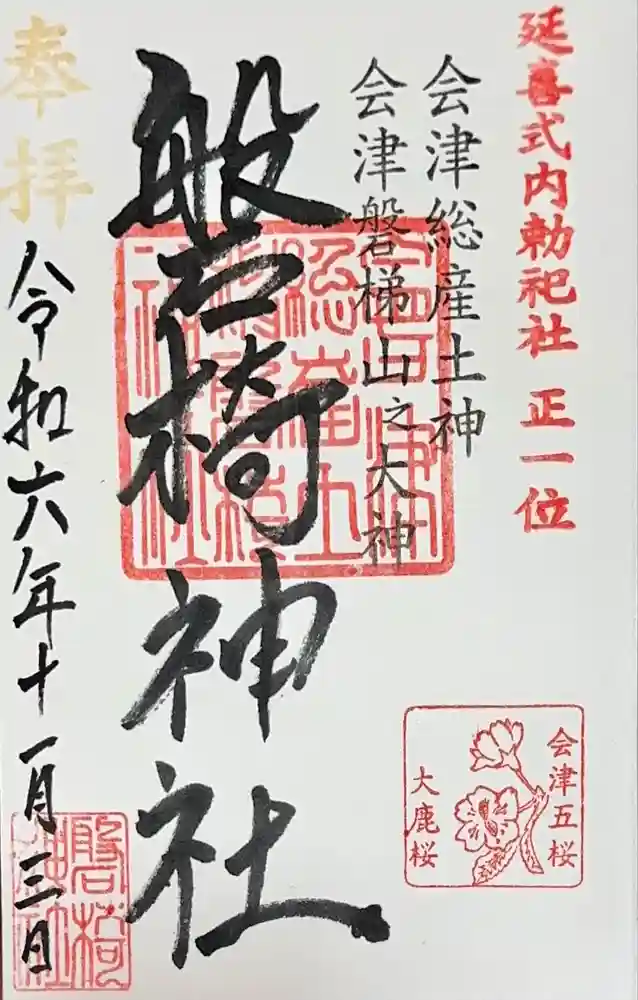 延喜式内勅祀社 正一位
会津総産土神
会津磐梯山之大神
磐椅神社
奉拝
令和六年十一月三日
会津五桜
大鹿桜
磐椅
神社